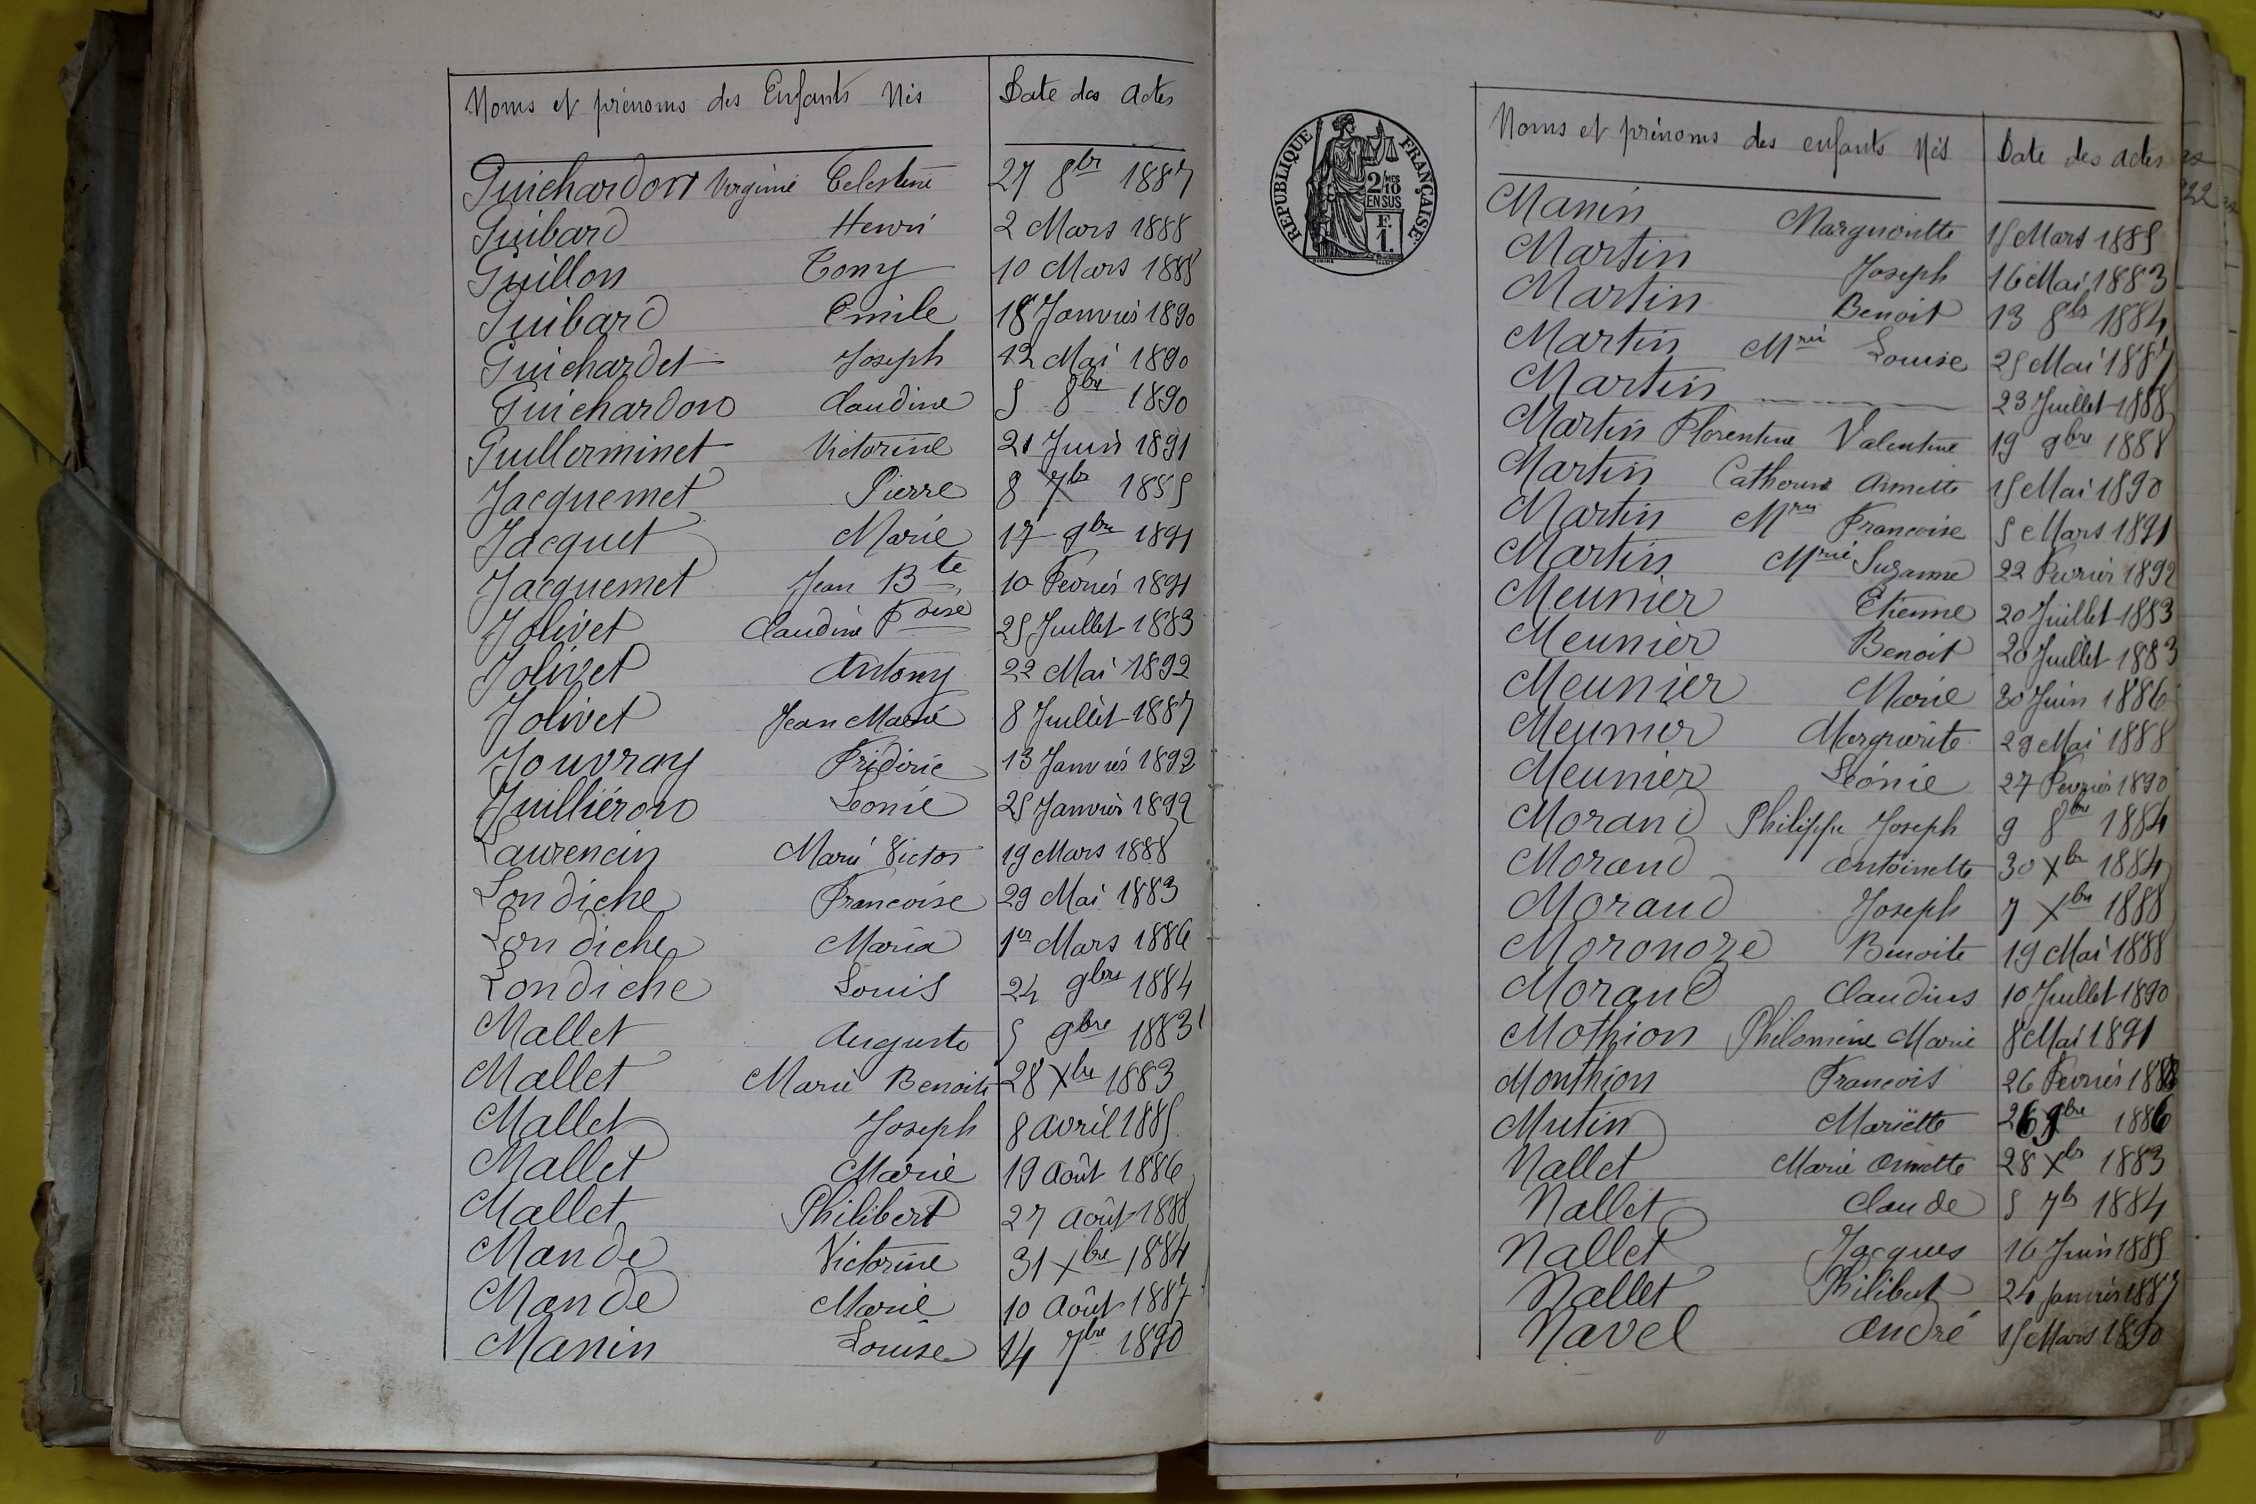 Noms et prénoms des Enfants Nés Date des Actes
Guichardon Virginie Celestine 27 8bre 1887
Guibard Henri 2 Mars 1888
Guillon Tony 10 Mars 1885
Guibard Emile 18 Janvier 1890
Guichardet Joseph 12 Mai 1890
Guichardon Claudine 5 8bre 1890
Guillerminet Victorine 21 Juin 1891
Jacquemet Pierre 8 7bre 1885
Jacquet Marie 17 9bre 1891
Jacquemet Jean Bte 10 Fevrier 1891
Jolivet Claudine Foise 25 Juillet 1883
Jolivet Antony 22 Mai 1892
Jolivet Jean Marie 8 Juillet 1887
Jouvray Fridéric 13 Janvier 1892
Juilliéron Leonie 25 Janvier 1892
Laurencin Marie Victor 19 Mars 1888
Londiche Francoise 29 Mai 1883
Londiche Maria 1er Mars 1886
Londiche Louis 24 9bre 1884
Mallet Auguste 5 9bre 1883
Mallet Marie Benoite 28 Xbre 1883
Mallet Joseph 8 avril 1885
Mallet Marie 19 Août 1886
Mallet Philibert 27 Août 1888
Mande Victorine 31 Xbre 1884
Mande Marie 10 Août 1887
Manin Louise 14 7bre 1890
REPUBLIQUE FRANÇAISE
2/10 MES
EN SUS
F.
1.
Noms et prénoms des enfants Nés Date des actes
Manin Margueritte 15 Mars 1885
Martin Joseph 16 Mai 1883
Martin Benoit 13 8bre 1884
Martin Mrie Louise 25 Mai 1887
Martin 23 Juillet 1888
Martin Florentine Valentine 19 9bre 1888
Martin Catherine Annette 15 Mai 1890
Martin Mrie Francoise 5 Mars 1891
Martin Mrie Suzanne 22 Fevrier 1892
Meunier Etienne 20 Juillet 1883
Meunier Benoit 20 Juillet 1883
Meunier Marie 30 Juin 1886
Meunier Marguerite 29 Mai 1888
Meunier Léonie 27 Fevrier 1890
Morand Philippe Joseph 9 8bre 1884
Morand Antoinette 30 Xbre 1884
Morand Joseph 7 Xbre 1888
Moronoze Benoite 19 Mai 1888
Morand Claudius 10 Juillet 1890
Mothion Philomène Marie 8 Mai 1891
Monthion Francois 26 Fevrier
Mutin Mariette 26 9bre 1886
Nallet Marie Annette 28 Xbre 1883
Nallet Claude 5 7bre 1884
Nallet Jacques 16 Juin 1885
Nallet Philibert 24 Janvier 1887
Navel André 15 Mars 1890